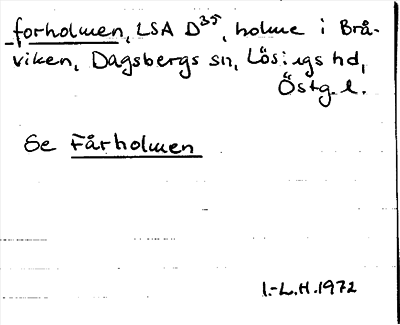 forholmen, LSA D³⁵, holme i Brå-
viken, Dagsbergs sn, Lösings hd,
Östg. l.
Se Fårholmen
I.-L.H. 1972